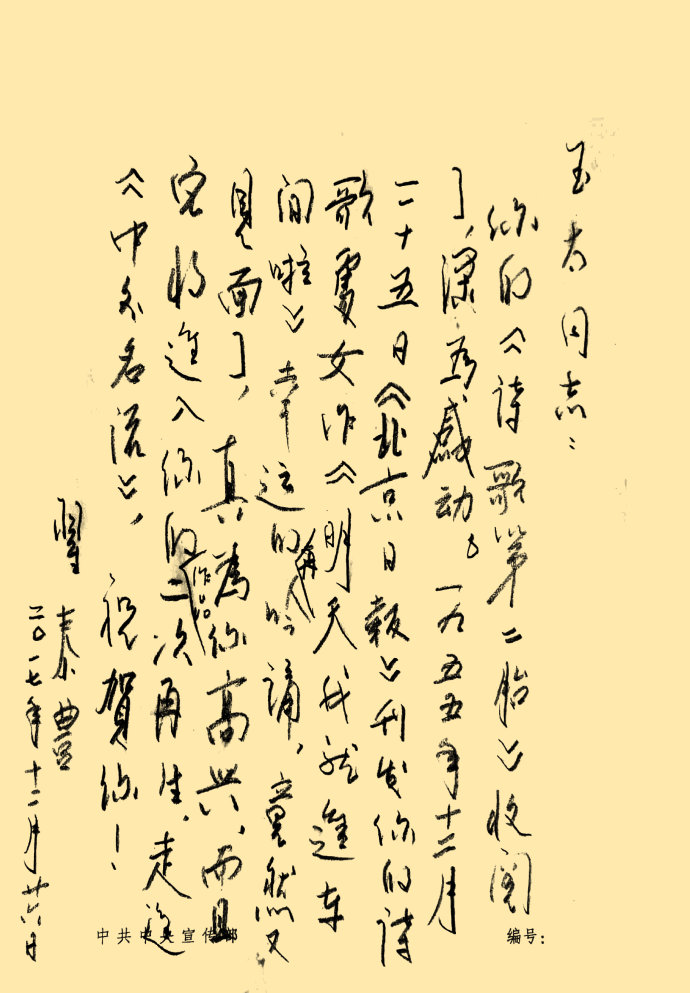 玉太同志：
你的《诗歌第二胎》收阅
了，深为感动。一九五五年十二月
二十五日《北京日报》刊发你的诗
歌处女作《明天我就进车
间啦》幸运的再吟诵，竟然又
見面了，真為你高兴，而且
它将進入你的作品二次再生，走進
《中外名流》，
祝賀你！
翟泰豐
二〇一七年十二月廿六日
中共中央宣传部
编号：